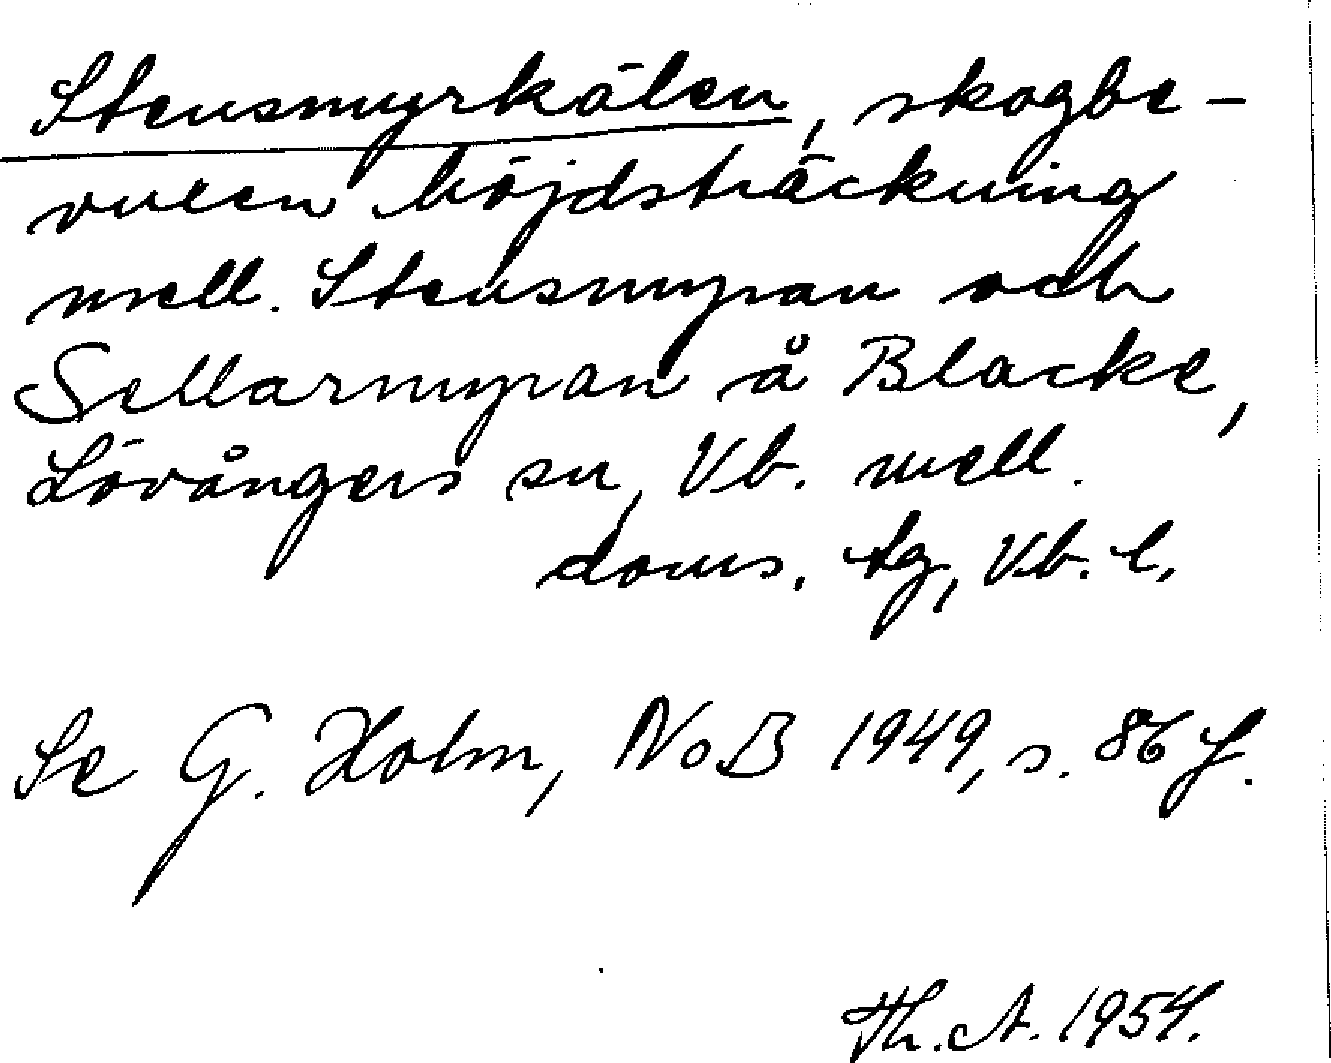 Stensmyrkälen, skogbe-
vuxen höjdsträckning
mell. Stensmyran och
Sellarmyran å Blacke,
Lövångers sn, Vb. mell.
doms. tg, Vb. l.
Se G. Holm, NoB 1949, s. 86 f.
Th. A. 1954.